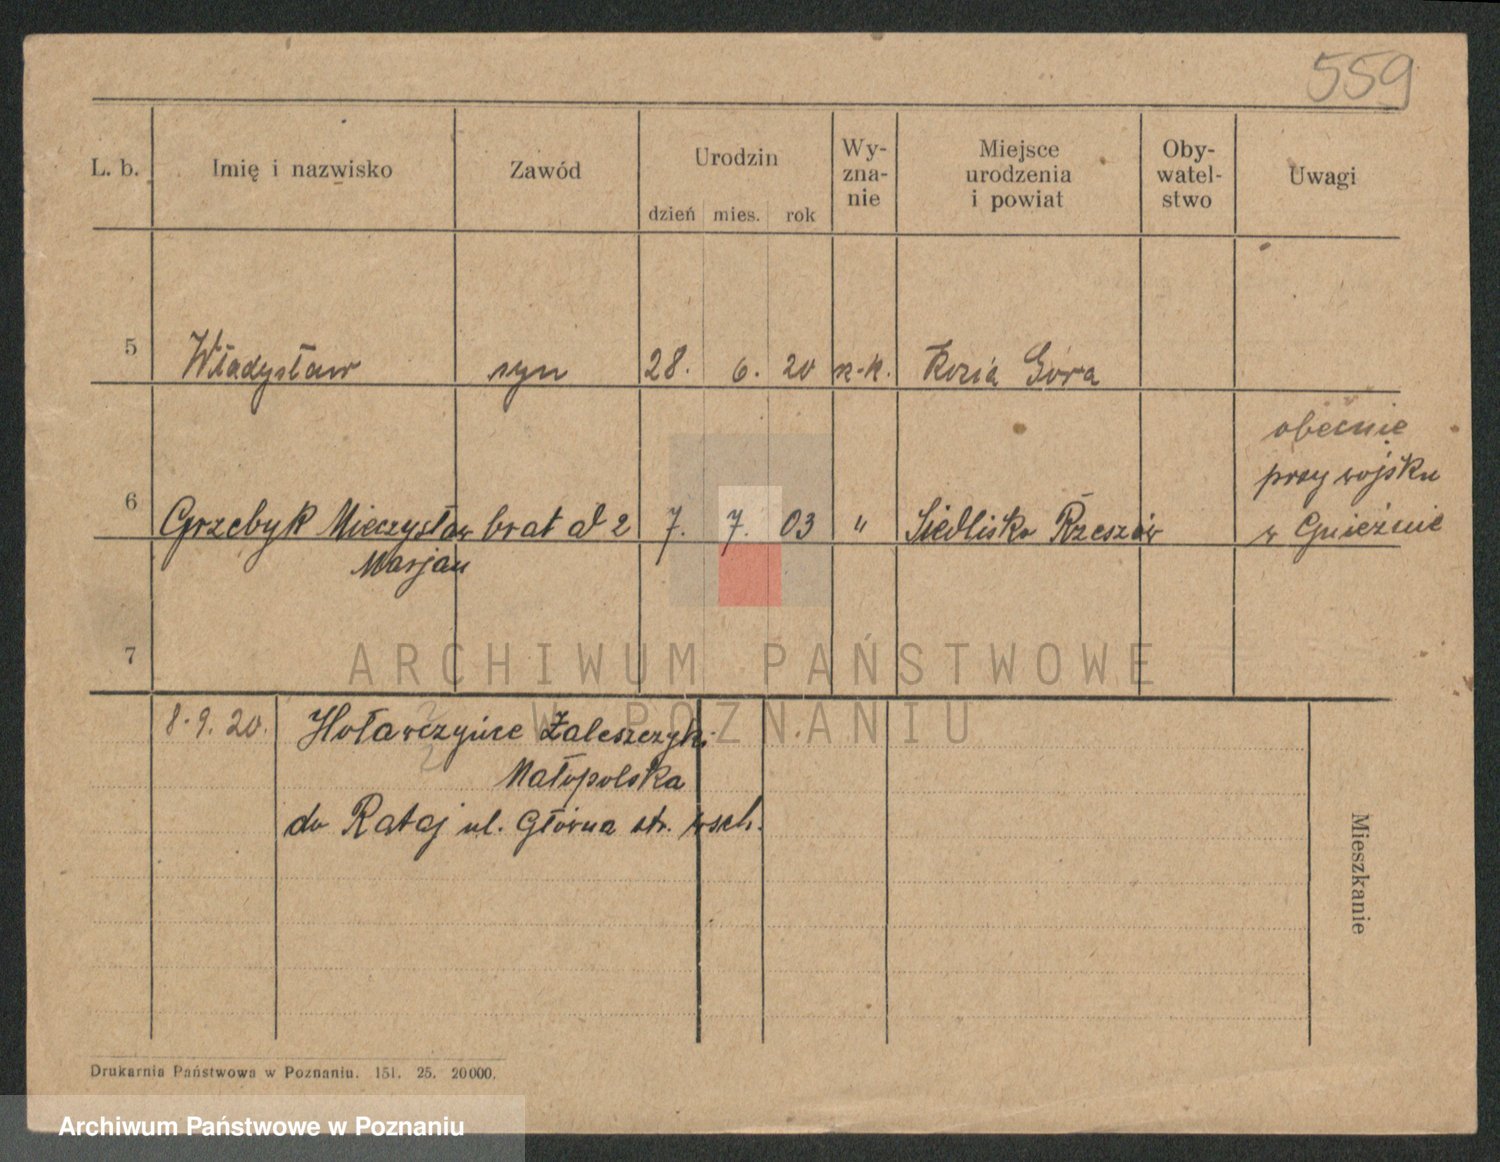 559
L. b. Imię i nazwisko Zawód Urodzin Wy-
zna-
nie Miejsce
urodzenia
i powiat Oby-
watel-
stwo Uwagi
dzień mies. rok
5 Władysław syn 28. 6. 20 r.-k. Kozia Góra
obecnie
przy wojsku
6 Grzebyk Mieczysław brat ad 2 7. 7. 03 " Siedlisko Rzeszów w Gnieźnie
Marjan
7
ARCHIWUM PAŃSTWOWE
W POZNANIU
8.9.20. Zaleszczyki
Małopolska
do Rataj ul. Główna str. wsch.
Mieszkanie
Drukarnia Państwowa w Poznaniu. 151. 25. 20000.
Archiwum Państwowe w Poznaniu